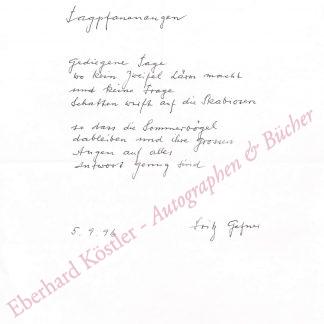 Tagpfauenaugen
Gediegene Tage
wo kein Zweifel Lärm macht
und keine Frage
Schatten wirft auf die Skabiosen
so dass die Sommervögel
dableiben und ihre grossen
Augen auf alles
Antwort genug sind
5. 9. 96 Fritz Gafner
Eberhard Köstler - Autographen & Bücher